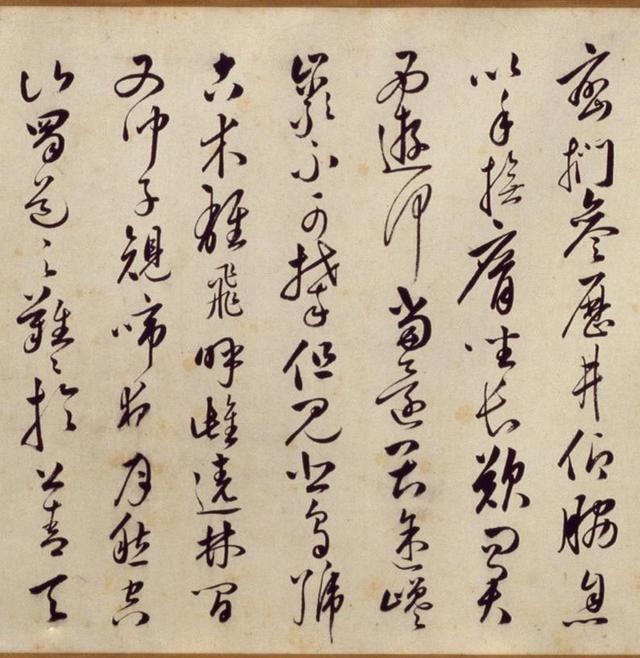 巒捫參歷井仰脅息
以手撫膺坐長歎問君
西遊何當還畏途巉
巖不可攀但見悲鳥號
古木雄飛呼雌遶林間
又聞子規啼夜月愁空
山蜀道之難難於上青天